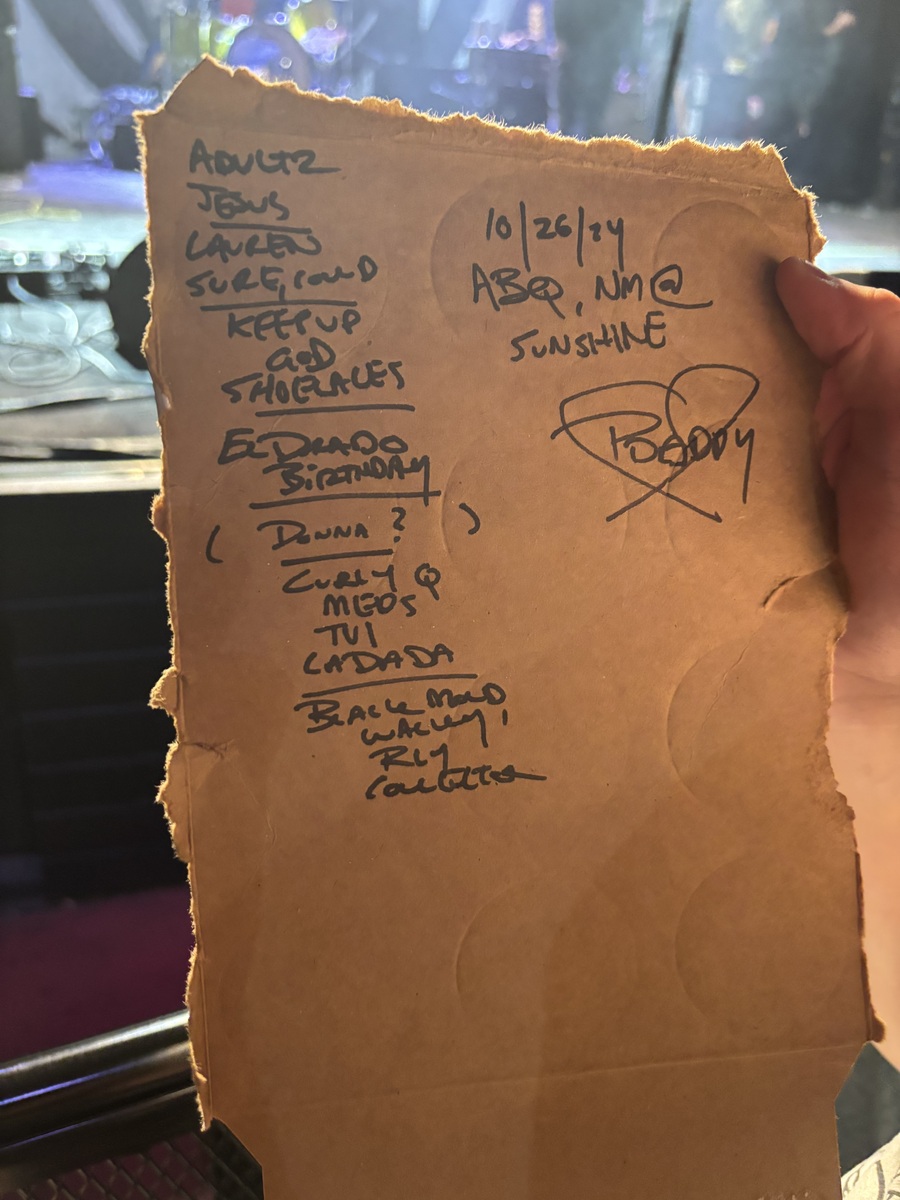 ADULTZ
JESUS
LAUREN
SURE, COULD
KEEP UP
GOD
SHOELACES
ELDRADO
BIRTHDAY
( DONNA? )
CURLY Q
MEDS
TV1
LADADA
BLACK MOLD
WACKY,
RLY
10/26/24
ABQ, NM @
SUNSHINE